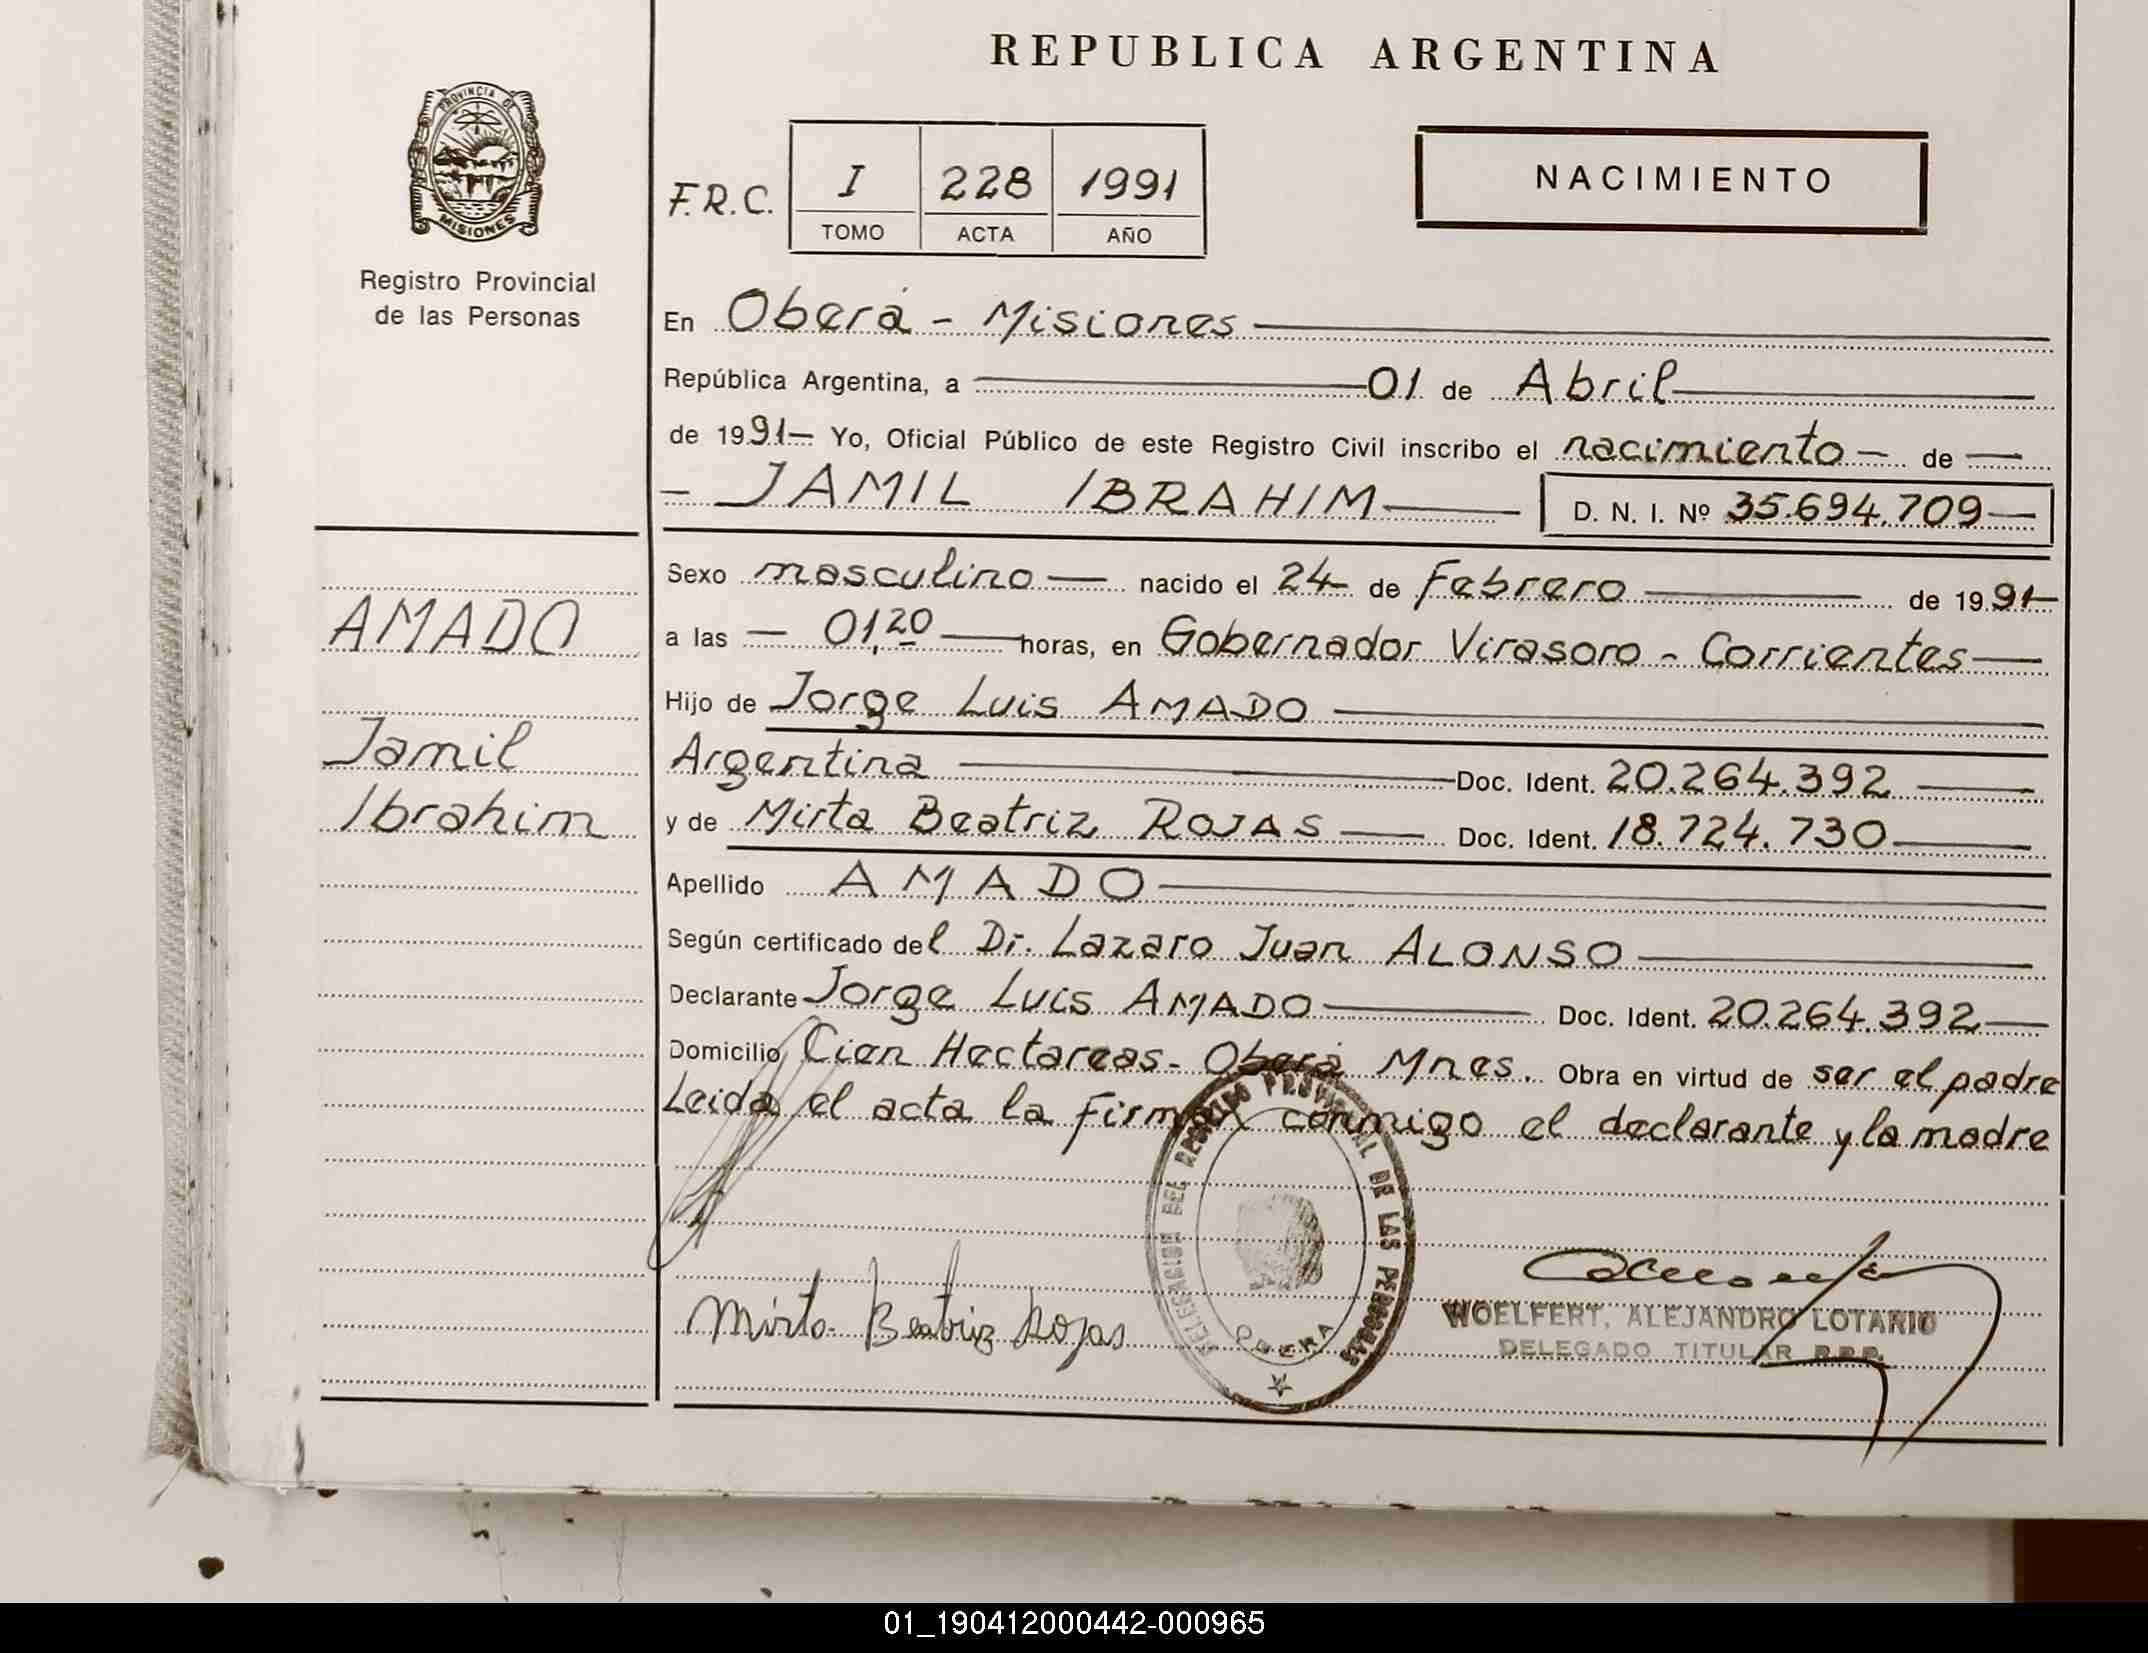 REPUBLICA ARGENTINA
PROVINCIA DE
MISIONES
Registro Provincial
de las Personas
F.R.C.
I 228 1991
TOMO ACTA AÑO
NACIMIENTO
En Oberá - Misiones
República Argentina, a 01 de Abril
de 1991 Yo, Oficial Público de este Registro Civil inscribo el nacimiento de
JAMIL IBRAHIM D. N. I. Nº 35.694.709
Sexo masculino nacido el 24 de Febrero de 1991
a las 01,20 horas, en Gobernador Virasoro - Corrientes
Hijo de Jorge Luis AMADO
Argentina Doc. Ident. 20.264.392
y de Mirta Beatriz ROJAS Doc. Ident. 18.724.730
Apellido AMADO
Según certificado del Dr. Lazaro Juan ALONSO
Declarante Jorge Luis AMADO Doc. Ident. 20.264.392
Domicilio Cien Hectareas - Oberá Mnes. Obra en virtud de ser el padre
Leida el acta la firman conmigo el declarante y la madre
AMADO
Jamil
Ibrahim
DELEGACION DEL REGISTRO PROVINCIAL DE LAS PERSONAS
OBERA
Mirta Beatriz Rojas
WOELFERT, ALEJANDRO LOTARIO
DELEGADO TITULAR R.P.P.
01_190412000442-000965